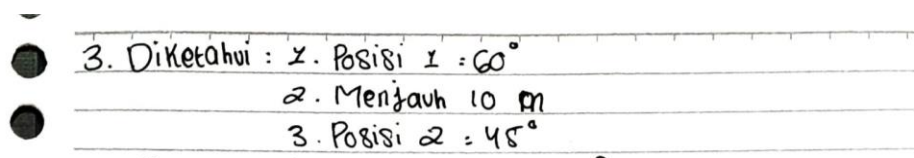 3. Diketahui : 1. Posisi 1 : 60°
2. Menjauh 10 m
3. Posisi 2 : 45°